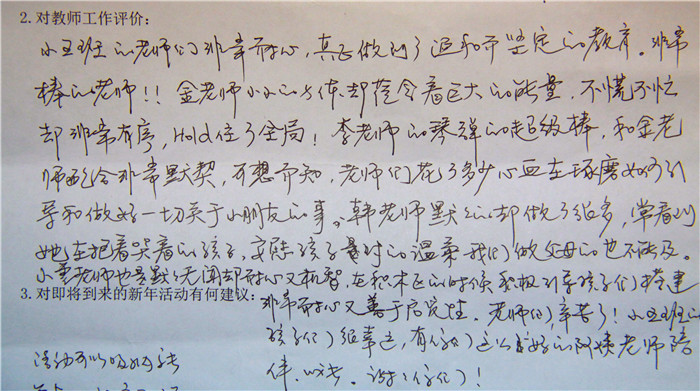 2. 对教师工作评价:
小五班的老师们非常耐心,真正做到了温和而坚定的教育。非常
棒的老师!!金老师小小的身体却蕴含着巨大的能量,不慌不忙
却非常有序,Hold住了全局!李老师的琴弹的超级棒,和金老
师配合非常默契,可想而知,老师们花了多少心血在琢磨如何引
导和做好一切关于小朋友的事。韩老师默默的却做了很多,常看到
她在抱着哭着的孩子,安慰孩子时的温柔我们做父母的也不能及。
小老师也是默默无闻却耐心又机智,在积木区的时候积极引导孩子们搭建
3. 对即将到来的新年活动有何建议:
非常耐心又善于启发性。老师们,辛苦了!小五班的
孩子们很幸运,有你们这么好的阿姨老师陪
伴,谢谢你们!
活动可以吸纳